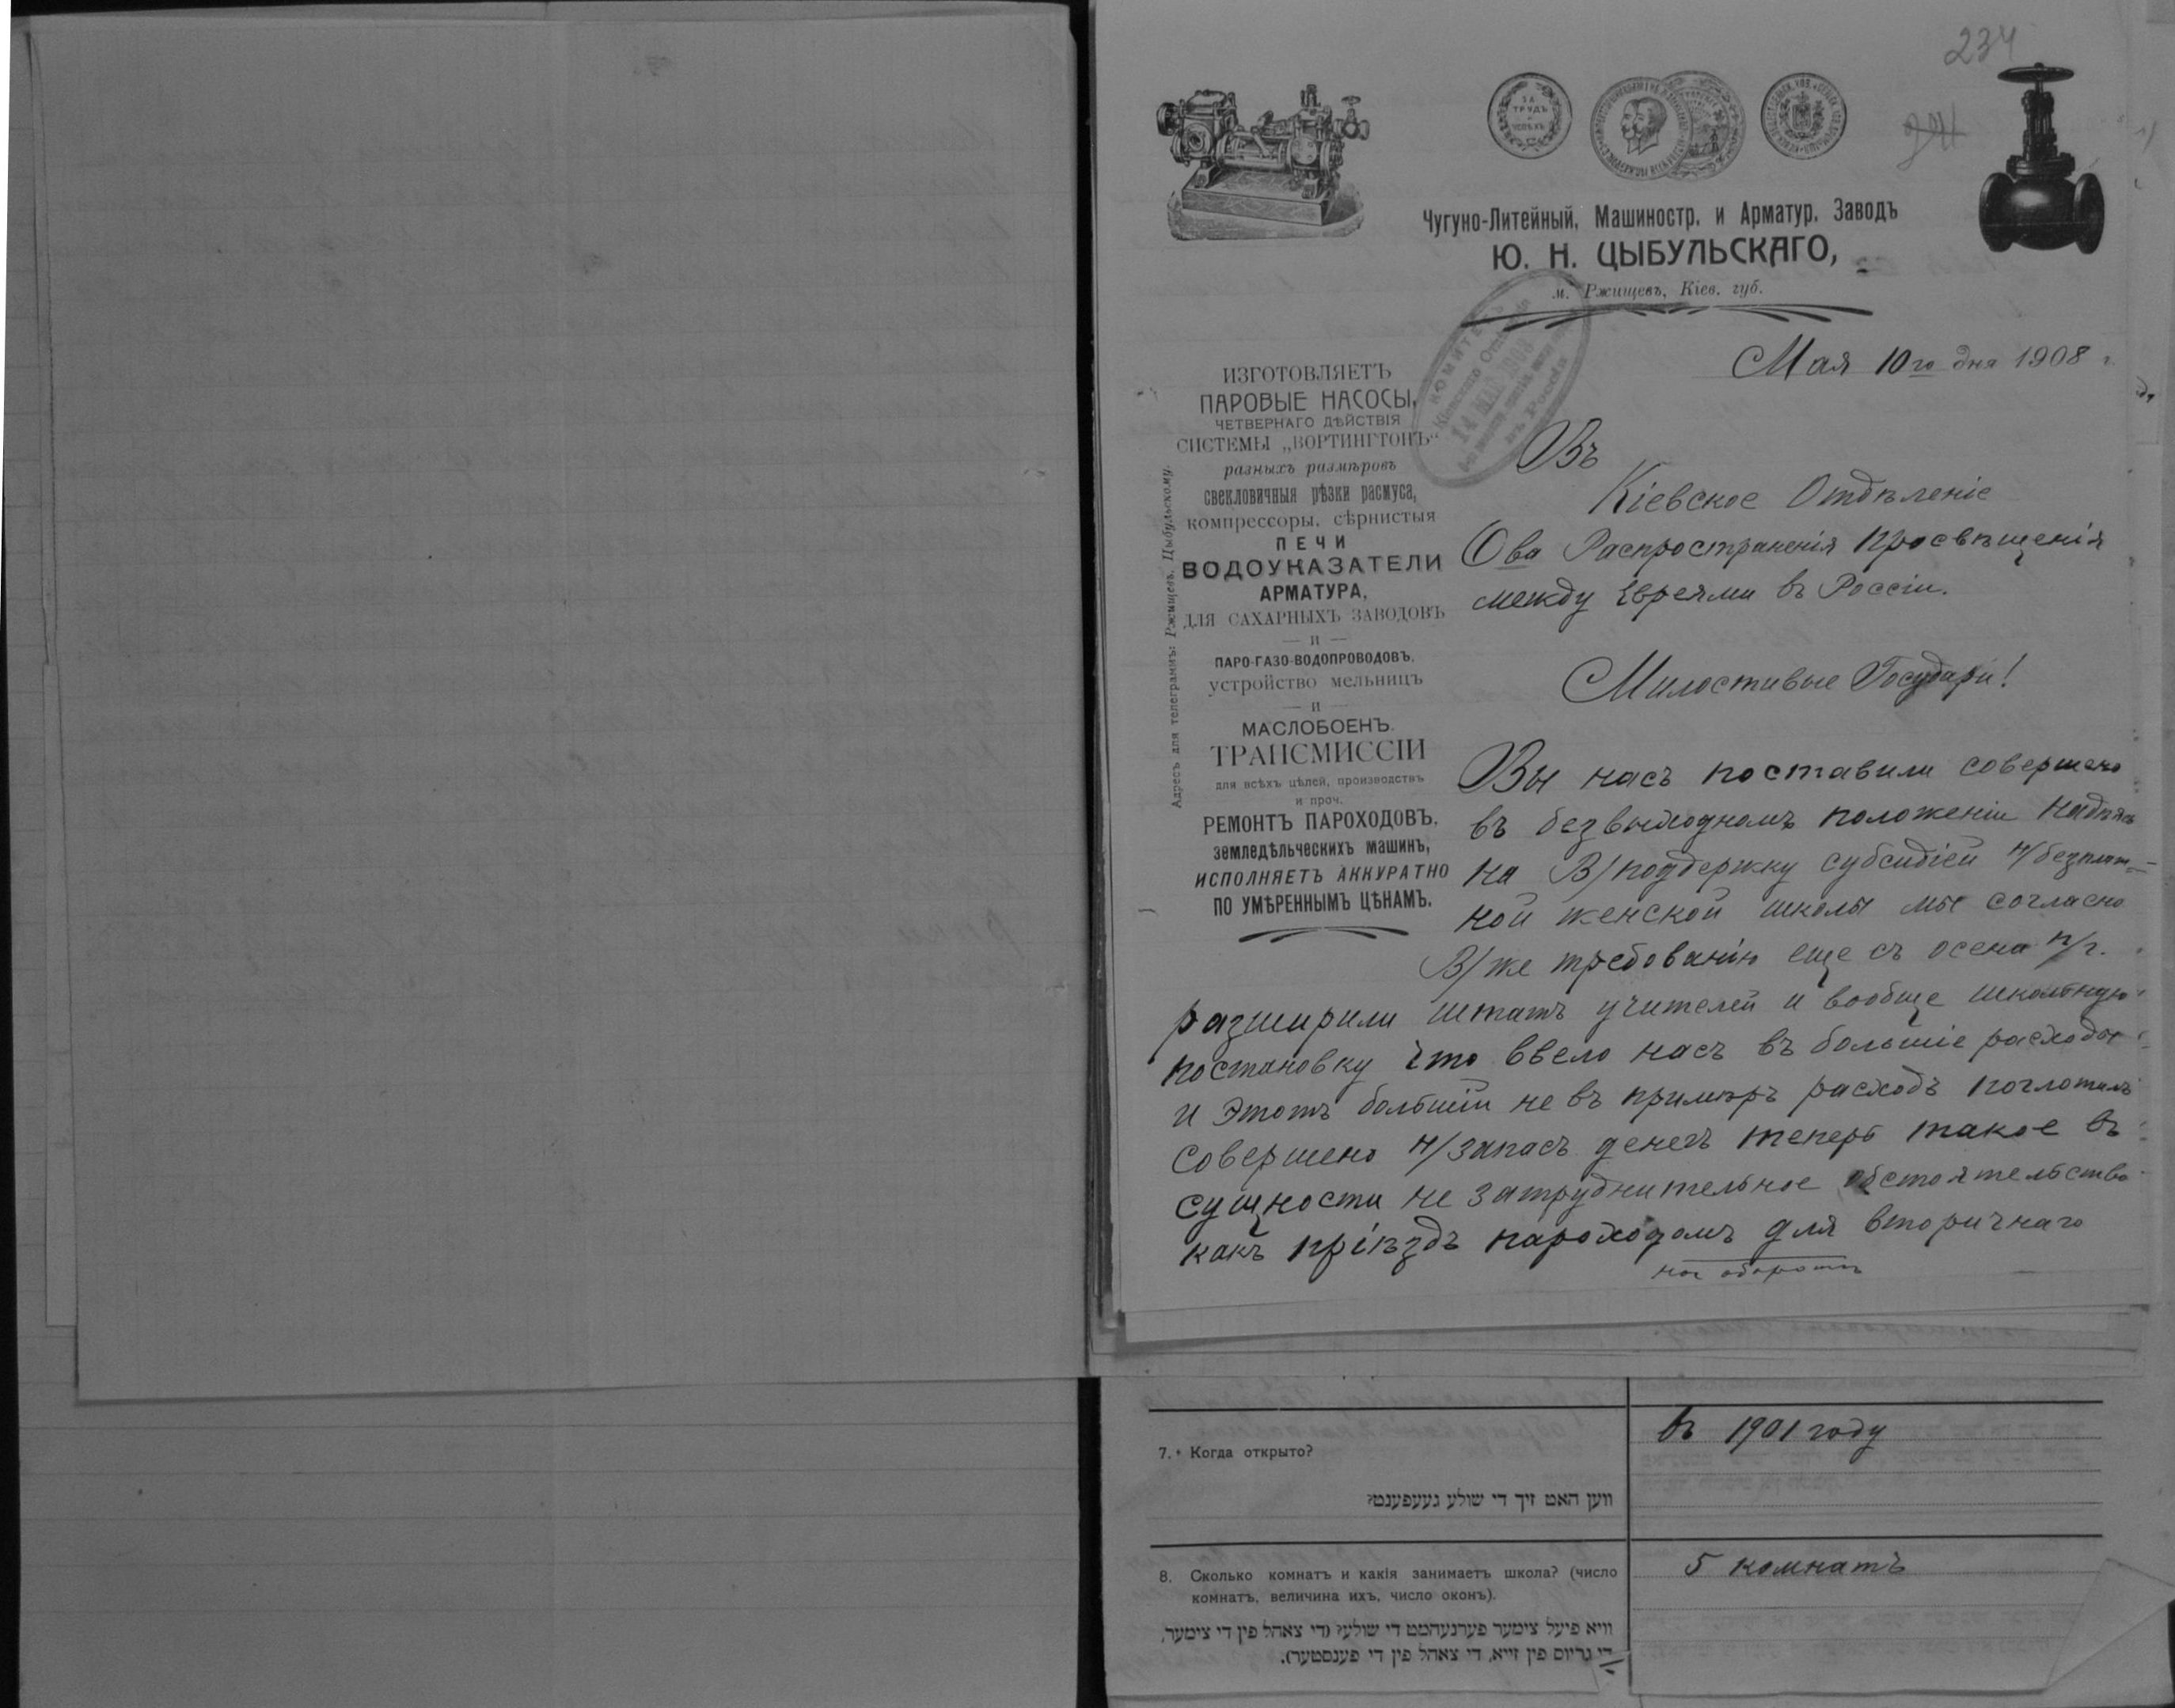 234
Чугуно-Литейный, Машиностр. и Арматур. Заводъ
Ю. Н. ЦЫБУЛЬСКАГО,
м. Ржищевъ, Кіев. губ.
КОМИТЕТЪ
Кіевскаго Отдѣленія
14 МАЙ 1908
въ Россіи
Адресъ для телеграммъ: Ржищевъ, Цыбульскому.
ИЗГОТОВЛЯЕТЪ
ПАРОВЫЕ НАСОСЫ,
ЧЕТВЕРНАГО ДѢЙСТВІЯ
СИСТЕМЫ „ВОРТИНГТОНЪ“
разныхъ размѣровъ
свекловичныя рѣзки расмуса,
компрессоры, сѣрнистыя
ПЕЧИ
ВОДОУКАЗАТЕЛИ
АРМАТУРА,
ДЛЯ САХАРНЫХЪ ЗАВОДОВЪ
— и —
ПАРО-ГАЗО-ВОДОПРОВОДОВЪ,
устройство мельницъ
— и —
МАСЛОБОЕНЪ.
ТРАНСМИССІИ
для всѣхъ цѣлей, производствъ
и проч.
РЕМОНТЪ ПАРОХОДОВЪ,
земледѣльческихъ машинъ,
ИСПОЛНЯЕТЪ АККУРАТНО
ПО УМѢРЕННЫМЪ ЦѢНАМЪ.
Мая 10го дня 1908 г.
Въ
Кіевское Отдѣленіе
Ова Распространенія Просвѣщенія
между Евреями въ Россіи.
Милостивые Государи!
Вы насъ поставили совершено
въ безвыходномъ положеніи надѣясь
на В/поддержку субсидіей н/безплат-
ной женской школы мы согласно
В/же требованію еще съ осени п/г.
разширили штатъ учителей и вообще школьную
постановку что ввело насъ въ большіе расходы
и этотъ большій не въ примѣръ расходъ поглотилъ
совершено н/запасъ денегъ теперь такое въ
сущности не затруднительное обстоятельство
какъ пріѣздъ пароходомъ для вторичнаго
на оборотъ
7. Когда открыто?
ווען האט זיך די שולע געעפענט?
въ 1901 году
8. Сколько комнатъ и какія занимаетъ школа? (число
комнатъ, величина ихъ, число оконъ).
וויא פיעל צימער פערנעהמט די שולע? (די צאהל פין די צימער,
די גרויס פין זייא, די צאהל פין די פענסטער).
5 комнатъ